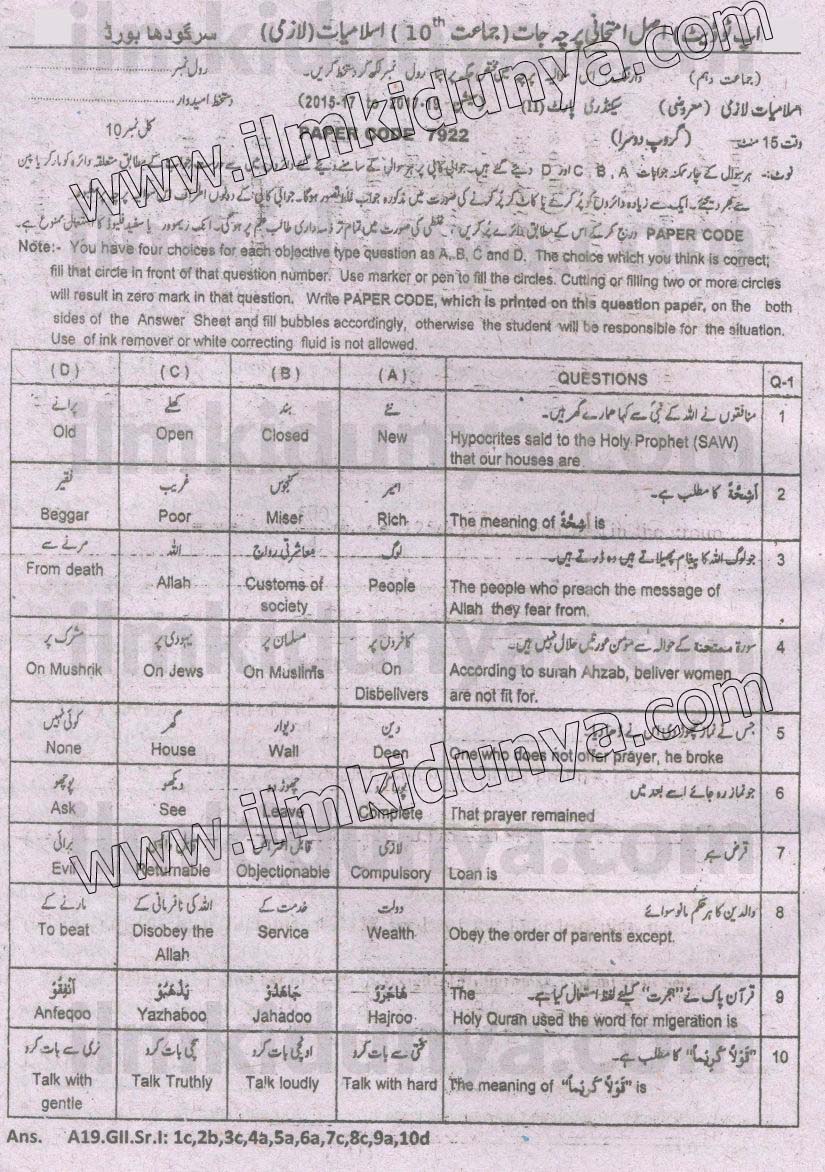 اپ ٹو ڈیٹ اصل امتحانی پرچہ جات (جماعت 10th) اسلامیات (لازمی) سرگودھا بورڈ
(جماعت دہم) رول نمبر لکھ کر دستخط کریں۔ رول نمبر
اسلامیات لازمی (معروضی) سیکنڈری پارٹ (II) (2015-17 to 2017-19) دستخط امیدوار
وقت 15 منٹ (گروپ دوسرا) PAPER CODE 7922 کل نمبر 10
نوٹ:- ہر سوال کے چار ممکنہ جوابات A ، B ، C اور D دیئے گئے ہیں۔ جوابی کاپی پر ہر سوال کے سامنے دیئے گئے دائروں میں سے درست جواب کے مطابق متعلقہ دائرہ کو مارکر یا پین
سے بھر دیجئے۔ ایک سے زیادہ دائروں کو پُر کرنے یا کاٹ کر پُر کرنے کی صورت میں مذکورہ جواب غلط تصور ہوگا۔ جوابی کاپی کے دونوں اطراف
PAPER CODE درج کر کے اس کے مطابق دائرے پُر کریں، غلطی کی صورت میں تمام تر ذمہ داری طالب علم پر ہوگی۔ انک ریموور یا سفید فلیوڈ کا استعمال ممنوع ہے۔
Note:- You have four choices for each objective type question as A, B, C and D. The choice which you think is correct;
fill that circle in front of that question number. Use marker or pen to fill the circles. Cutting or filling two or more circles
will result in zero mark in that question. Write PAPER CODE, which is printed on this question paper, on the both
sides of the Answer Sheet and fill bubbles accordingly, otherwise the student will be responsible for the situation.
Use of ink remover or white correcting fluid is not allowed.
( D ) ( C ) ( B ) ( A ) QUESTIONS Q-1
پرانے کھلے بند نئے منافقوں نے اللہ کے نبیؐ سے کہا ہمارے گھر ہیں۔ 1
Old Open Closed New Hypocrites said to the Holy Prophet (SAW)
that our houses are
فقیر غریب کنجوس امیر اَشِحَّةً کا مطلب ہے۔ 2
Beggar Poor Miser Rich The meaning of اَشِحَّةً is
مرنے سے اللہ معاشرتی رواج لوگ جو لوگ اللہ کا پیغام پھیلاتے ہیں وہ ڈرتے ہیں۔ 3
From death Allah Customs of society People The people who preach the message of
Allah they fear from.
مشرک پر یہودی پر مسلمان پر کافروں پر سورۃ ممتحنہ کے حوالہ سے مومن عورتیں حلال نہیں ہیں۔ 4
On Mushrik On Jews On Muslims On Disbelivers According to surah Ahzab, beliver women
are not fit for.
کوئی نہیں گھر دیوار دین جس نے نماز چھوڑ دی اس نے ڈھا دیا 5
None House Wall Deen One who does not offer prayer, he broke
پوچھو دیکھو چھوڑ دو جو نماز رہ جائے اسے بعد میں 6
Ask See Leave Complete That prayer remained
برائی قابل اعتراض لازمی قرض ہے 7
Evil Returnable Objectionable Compulsory Loan is
مارنے کے اللہ کی نافرمانی کے خدمت کے دولت والدین کا ہر حکم مانو سوائے 8
To beat Disobey the Allah Service Wealth Obey the order of parents except.
اَنْفِقُوْ يَذْهَبُوْ جَاهَدُوْ هَاجَرُوْ قرآن پاک نے "ہجرت" کیلئے لفظ استعمال کیا ہے۔ The 9
Anfeqoo Yazhaboo Jahadoo Hajroo Holy Quran used the word for migeration is
نرمی سے بات کرو سچی بات کرو اونچی بات کرو سختی سے بات کرو "قَوْلًا كَرِيْمًا" کا مطلب ہے۔ 10
Talk with gentle Talk Truthly Talk loudly Talk with hard The meaning of "قَوْلًا كَرِيْمًا" is
Ans. A19.GII.Sr.I: 1c,2b,3c,4a,5a,6a,7c,8c,9a,10d
www.ilmkidunya.com
www.ilmkidunya.com
ilmkidunya.com